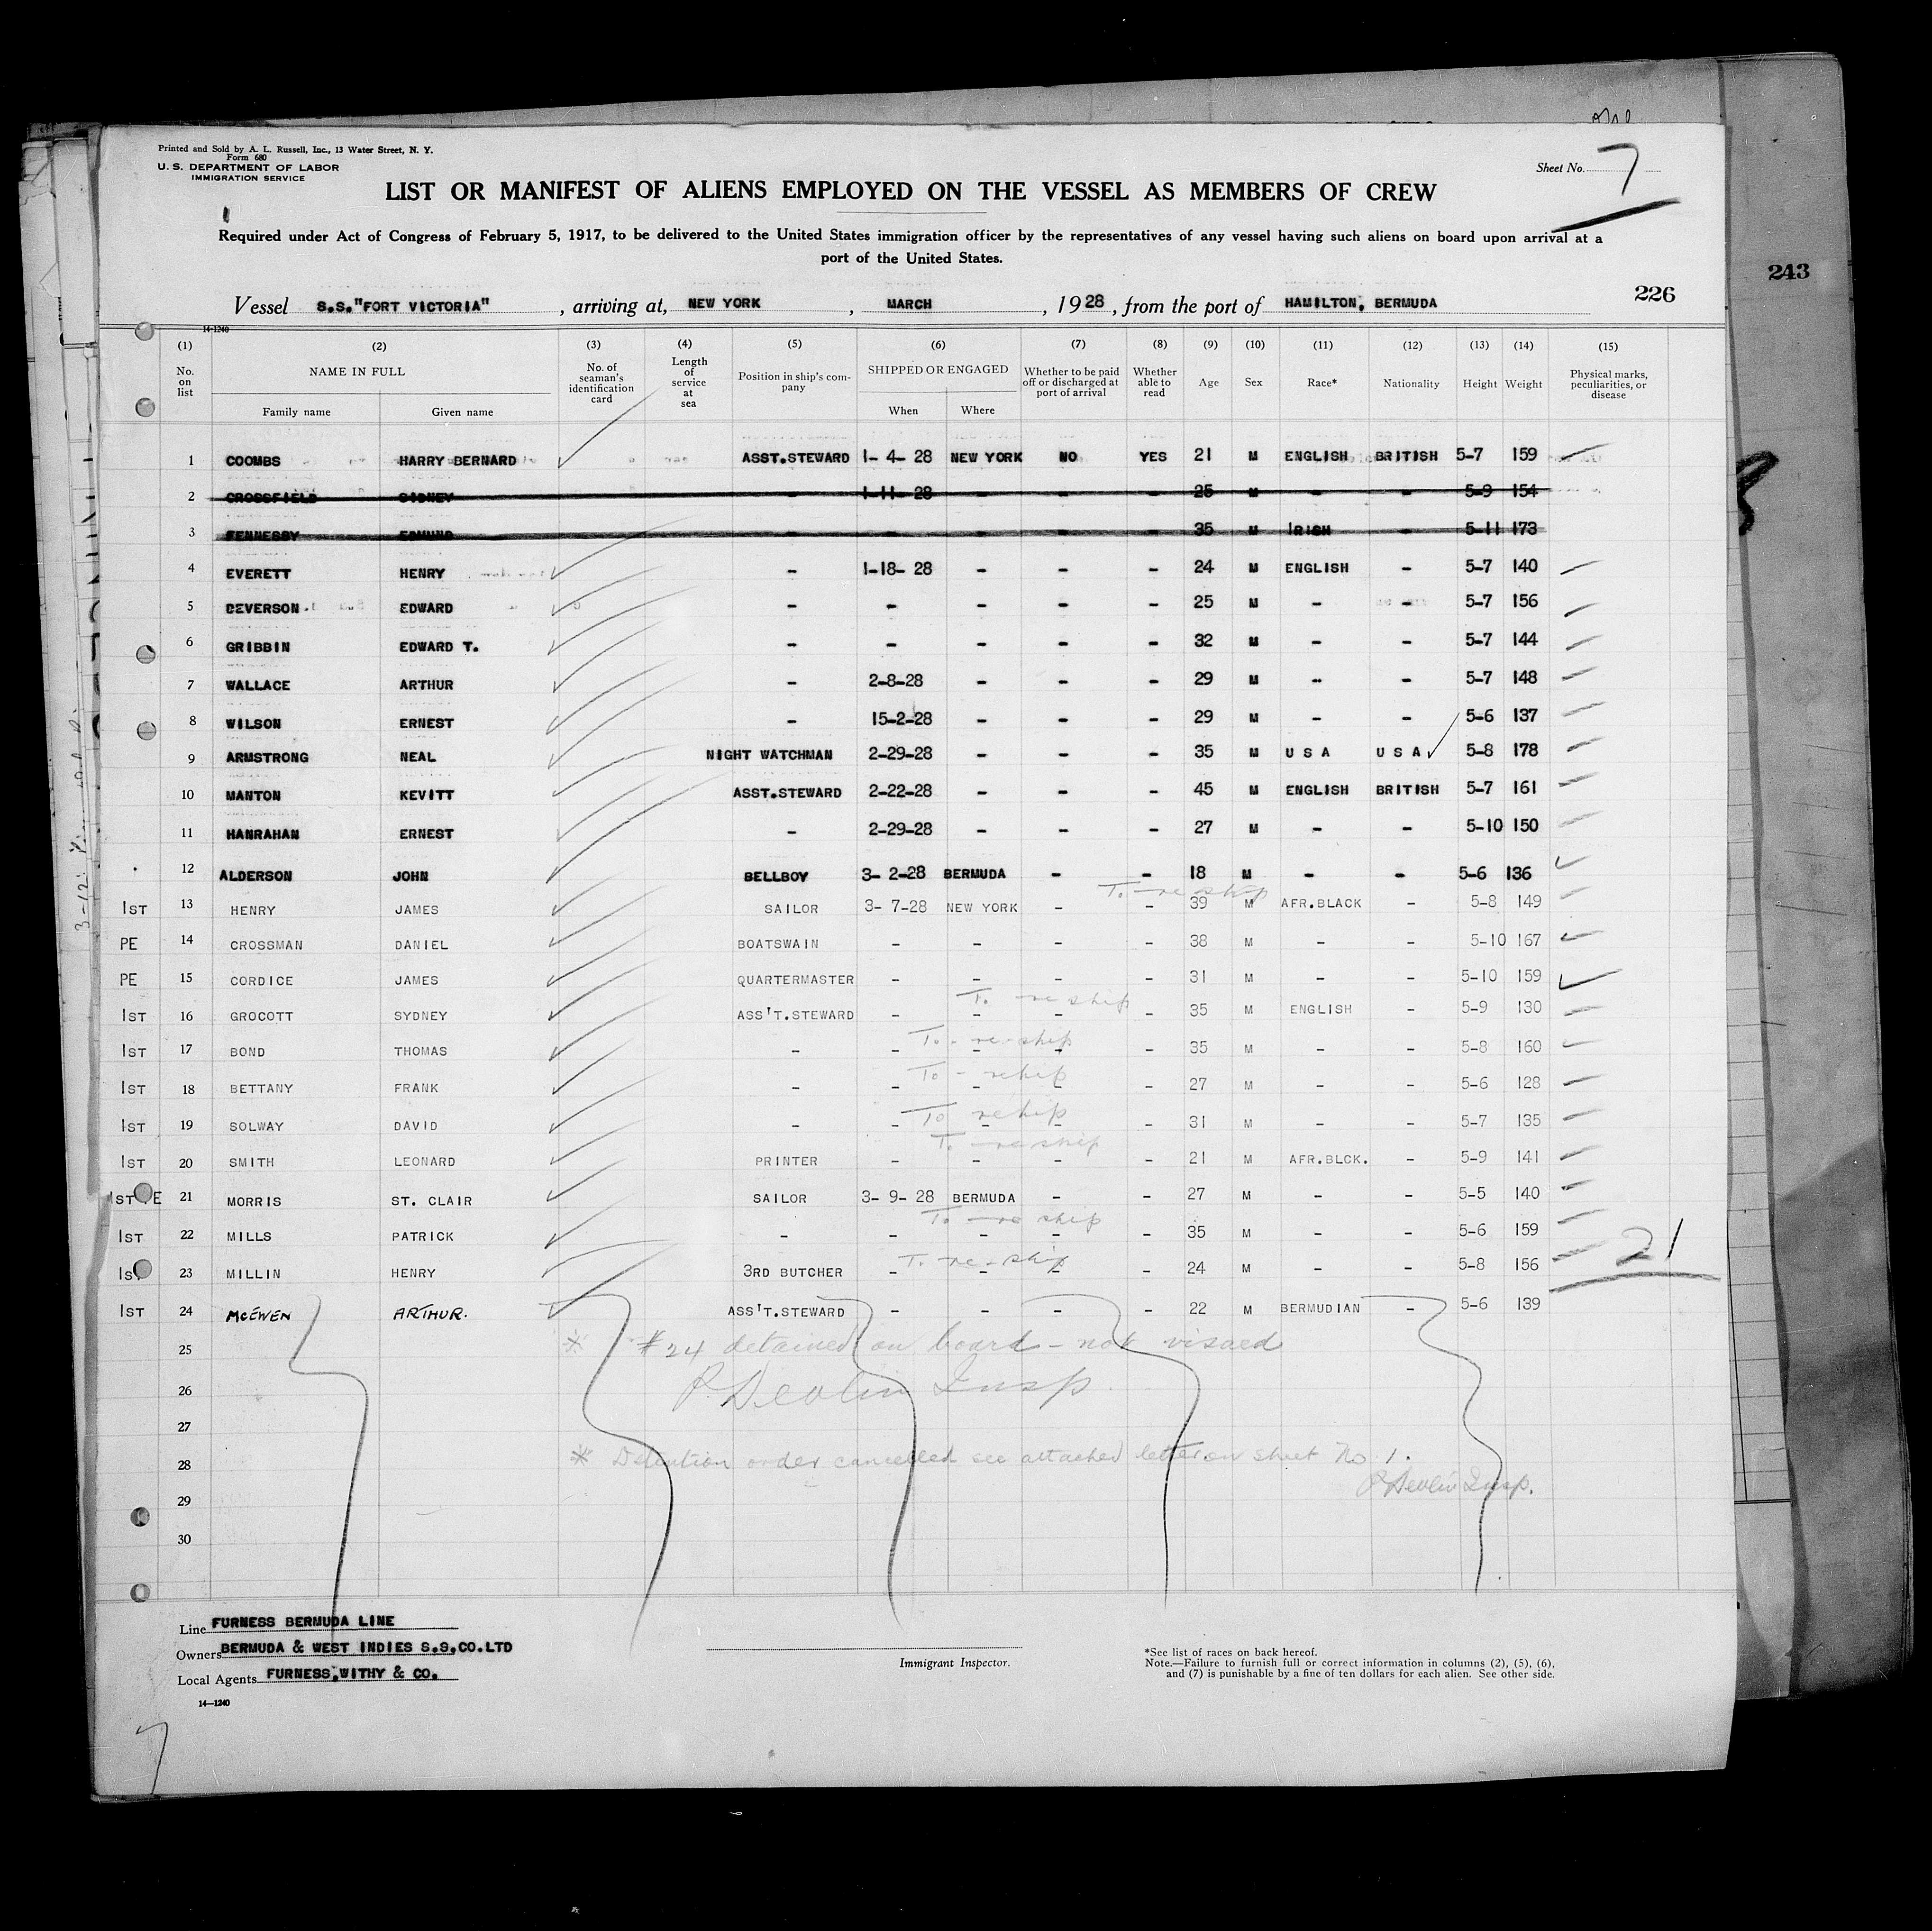 Printed and Sold by A. L. Russell, Inc., 13 Water Street, N. Y.
Form 680
U. S. DEPARTMENT OF LABOR
IMMIGRATION SERVICE
Sheet No. 7
LIST OR MANIFEST OF ALIENS EMPLOYED ON THE VESSEL AS MEMBERS OF CREW
Required under Act of Congress of February 5, 1917, to be delivered to the United States immigration officer by the representatives of any vessel having such aliens on board upon arrival at a
port of the United States.
243
226
Vessel S.S."FORT VICTORIA", arriving at, NEW YORK, MARCH, 1928, from the port of HAMILTON, BERMUDA
14-1240
(1) (2) (3) (4) (5) (6) (7) (8) (9) (10) (11) (12) (13) (14) (15)
No. on list NAME IN FULL No. of seaman's identification card Length of service at sea Position in ship's company SHIPPED OR ENGAGED Whether to be paid off or discharged at port of arrival Whether able to read Age Sex Race* Nationality Height Weight Physical marks, peculiarities, or disease
Family name Given name When Where
1 COOMBS HARRY BERNARD ASST.STEWARD 1- 4- 28 NEW YORK NO YES 21 M ENGLISH BRITISH 5-7 159
2 CROSSFIELD SIDNEY - 1-11- 28 - - - 25 M - - 5-9 154
3 FENNESSY EDMUND - - - - - 35 M IRISH - 5-11 173
4 EVERETT HENRY - 1-18- 28 - - - 24 M ENGLISH - 5-7 140
5 DEVERSON EDWARD - - - - - 25 M - - 5-7 156
6 GRIBBIN EDWARD T. - - - - - 32 M - - 5-7 144
7 WALLACE ARTHUR - 2-8-28 - - - 29 M - - 5-7 148
8 WILSON ERNEST - 15-2-28 - - - 29 M - - 5-6 137
9 ARMSTRONG NEAL NIGHT WATCHMAN 2-29-28 - - - 35 M U S A U S A 5-8 178
10 MANTON KEVITT ASST.STEWARD 2-22-28 - - - 45 M ENGLISH BRITISH 5-7 161
11 HANRAHAN ERNEST - 2-29-28 - - - 27 M - - 5-10 150
12 ALDERSON JOHN BELLBOY 3- 2-28 BERMUDA - - 18 M - - 5-6 136
To re ship
1ST 13 HENRY JAMES SAILOR 3- 7-28 NEW YORK - - 39 M AFR.BLACK - 5-8 149
PE 14 CROSSMAN DANIEL BOATSWAIN - - - - 38 M - - 5-10 167
PE 15 CORDICE JAMES QUARTERMASTER - - - - 31 M - - 5-10 159
To re ship
1ST 16 GROCOTT SYDNEY ASS'T.STEWARD - - - - 35 M ENGLISH - 5-9 130
To - re-ship
1ST 17 BOND THOMAS - - - - - 35 M - - 5-8 160
To - reship
1ST 18 BETTANY FRANK - - - - - 27 M - - 5-6 128
To reship
1ST 19 SOLWAY DAVID - - - - - 31 M - - 5-7 135
To re ship
1ST 20 SMITH LEONARD PRINTER - - - - 21 M AFR.BLCK. - 5-9 141
1ST PE 21 MORRIS ST. CLAIR SAILOR 3- 9- 28 BERMUDA - - 27 M - - 5-5 140
To re ship
1ST 22 MILLS PATRICK - - - - - 35 M - - 5-6 159
21
To re-ship
1ST 23 MILLIN HENRY 3RD BUTCHER - - - - 24 M - - 5-8 156
1ST 24 McEWEN ARTHUR. ASS'T.STEWARD - - - - 22 M BERMUDIAN - 5-6 139
25 * #24 detained on board - not visaed
26 P. Devlin Insp.
27
28 * Detention order cancelled see attached letter on sheet No 1.
P Devlin Insp.
29
30
Line FURNESS BERMUDA LINE
Owners BERMUDA & WEST INDIES S.S.CO.LTD
Local Agents FURNESS,WITHY & CO.
14—1240
Immigrant Inspector.
*See list of races on back hereof.
Note.—Failure to furnish full or correct information in columns (2), (5), (6),
and (7) is punishable by a fine of ten dollars for each alien. See other side.
7